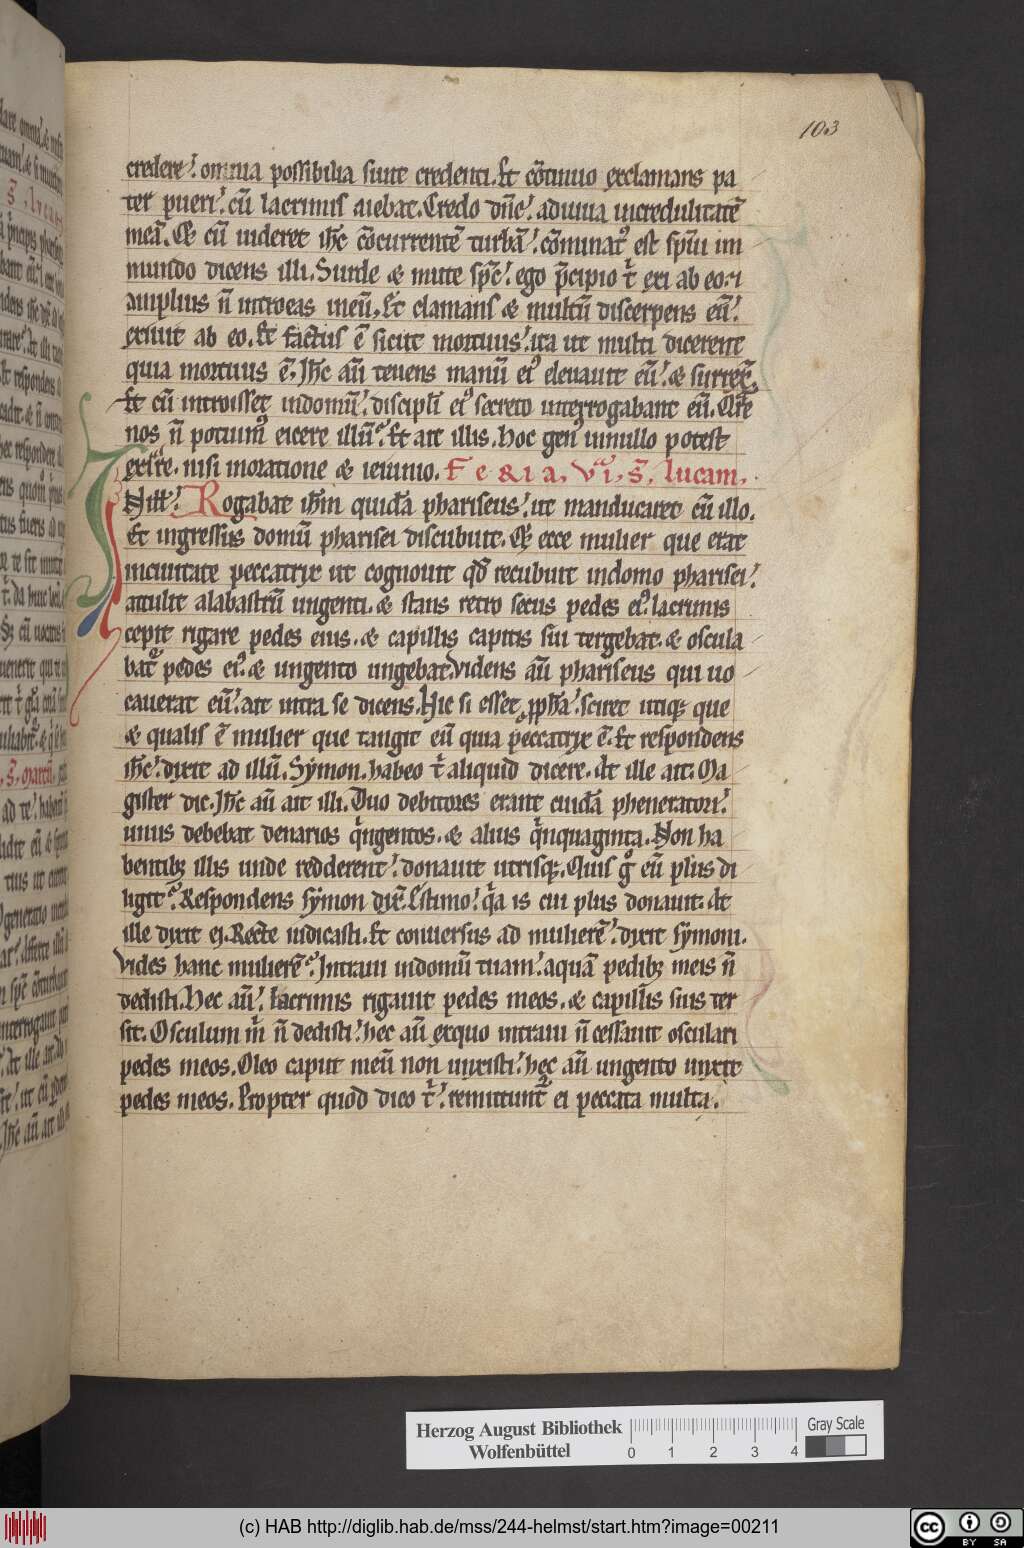 103
credere. omnia possibilia sunt credenti. Et cōtinuo exclamans pa
ter pueri. cū lacrimis aiebat. Credo dn̄e. adiuua incredulitatē
meā. Et cū uideret ih̄c cōcurrentē turbā. cōminatꝰ est sp̄ui im
mundo dicens illi. Surde & mute sp̄c. ego p̄cipio t̄ exi ab eo. &
amplius n̄ introeas ineū. Et clamans & multū discerpens eū.
exiuit ab eo. Et factus ē sicut mortuus. ita ut multi dicerent
quia mortuus ē. Ih̄c aū tenens manū eiꝰ eleuauit eū. & surrex̄.
Et cū introisset indomū. discipl̄i eiꝰ secreto interrogabant eū. Q̄re
nos n̄ potuimꝰ eicere illū. Et ait illis. hoc genꝰ innullo potest
exire. nisi inoratione & ieiunio. Feria. vi. s̄. lucam.
In ill̄. Rogabat ih̄m quidā phariseus. ut manducaret cū illo.
Et ingressus domū pharisei discubuit. Et ecce mulier que erat
inciuitate peccatrix ut cognouit qd̄ recubuit indomo pharisei.
attulit alabastrū ungenti. & stans retro secus pedes eiꝰ. lacrimis
cepit rigare pedes eius. & capillis capitis sui tergebat. & oscula
batᷣ pedes eiꝰ. & ungento ungebat. Videns aū phariseus qui uo
cauerat eū. ait intra se dicens. Hic si esset ꝓph̄a. sciret utiqꝫ que
& qualis ē mulier que tangit eū quia peccatrix ē. Et respondens
ih̄c. dixit ad illū. Sẏmon. habeo t̄ aliquid dicere. At ille ait. Ma
gister dic. Ih̄c aū ait illi. Duo debitores erant cuidā pheneratori.
unus debebat denarios qͥngentos. & alius qͥnquaginta. Non ha
bentibꝫ illis unde redderent. donauit utrisqꝫ. Quis gͦ eū plus di
ligit. Respondens sẏmon dix̄. Estimo. qͥa is cui plus donauit. At
ille dixit ei. Recte iudicasti. Et conuersus ad mulierē. dixit sẏmoni.
Vides hanc mulierē. Intraui indomū tuam. aquā pedibꝫ meis n̄
dedisti. Hec aū. lacrimis rigauit pedes meos. & capillis suis ter
sit. Osculum m̄ n̄ dedisti. hec aū exquo intraui n̄ cessauit osculari
pedes meos. Oleo caput meū non unxisti. hec aū ungento unxit
pedes meos. Propter quod dico t̄. remittuntᷣ ei peccata multa.
Herzog August Bibliothek
Wolfenbüttel
0 1 2 3 4
Gray Scale
(c) HAB http://diglib.hab.de/mss/244-helmst/start.htm?image=00211
cc BY SA